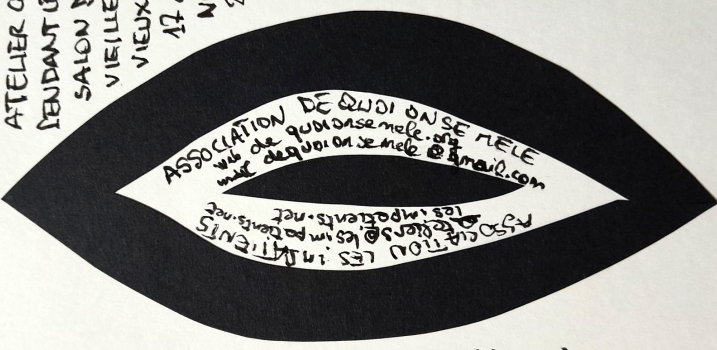 ATELIER
PENDANT
SALON
VIEILLE
VIEUX
17
ASSOCIATION DE QUOI ON SE MELE
web de quoionsemele.org
mail dequoionsemele@gmail.com
ASSOCIATION LES IMPATIENTS
ateliers@lesimpatients.net
lesimpatients.net